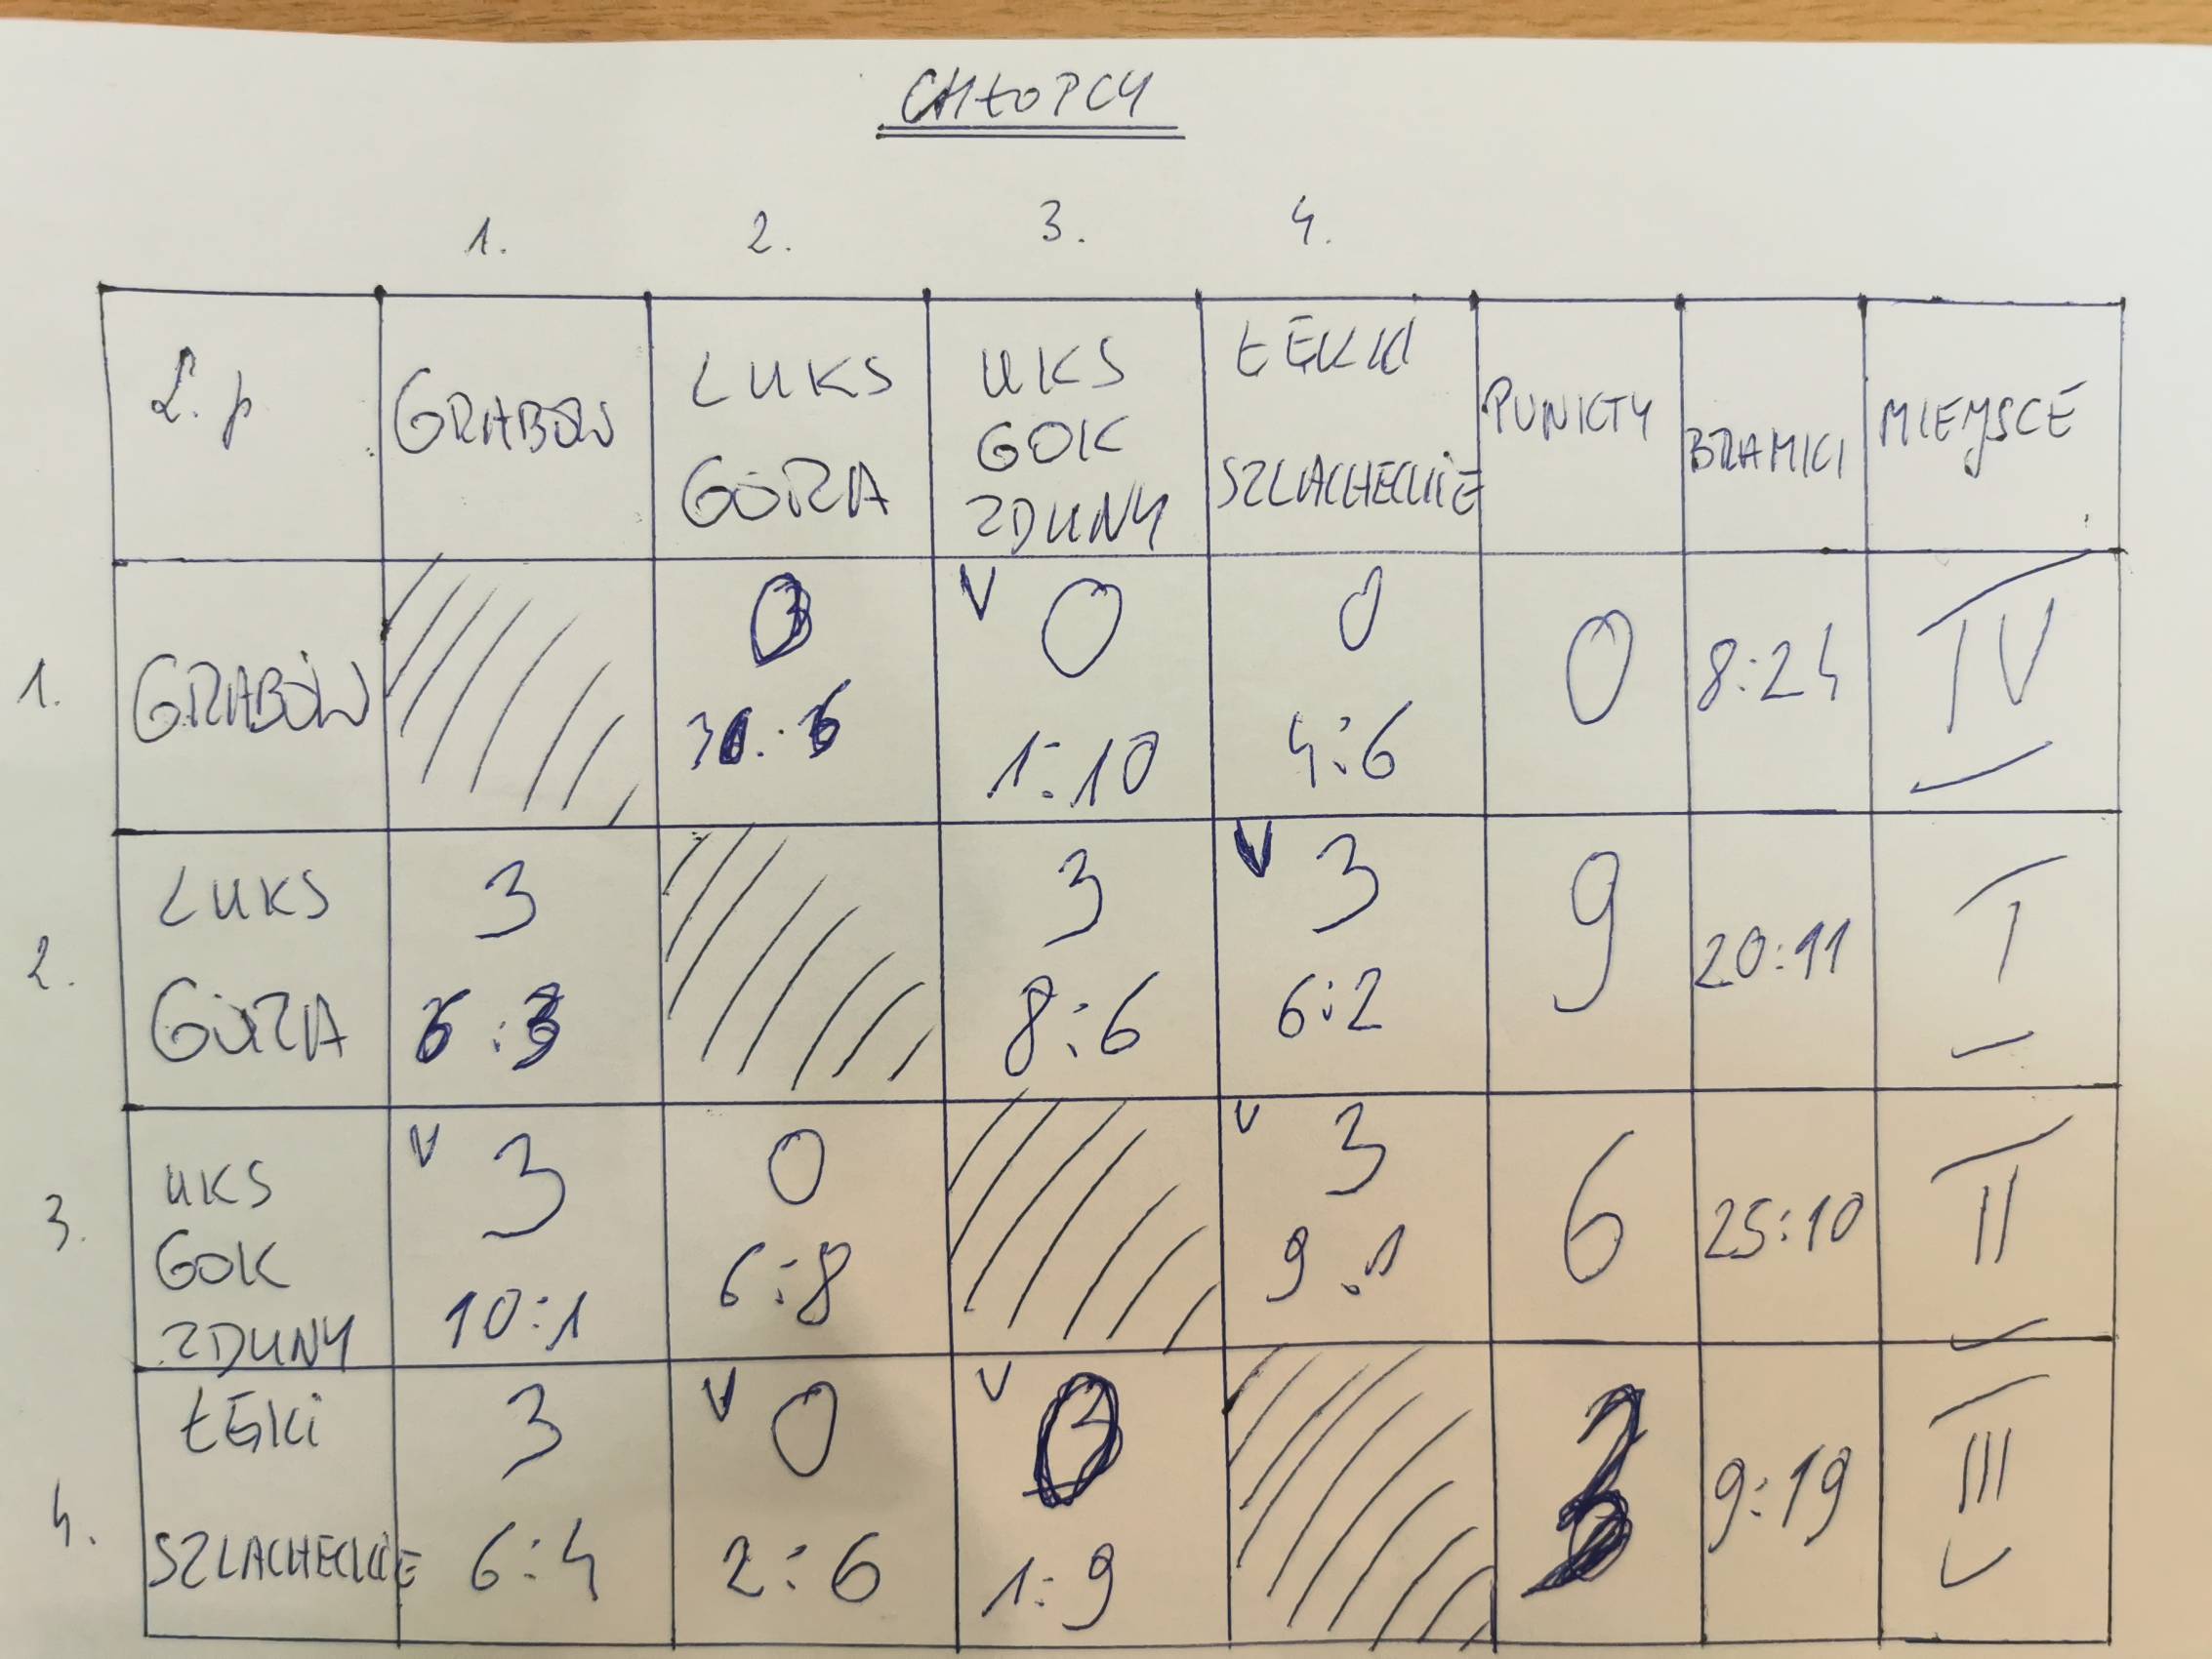 CHŁOPCY
1. 2. 3. 4.
L.p GRABÓW LUKS GÓRA UKS GOK ZDUNY ŁĘKI SZLACHECKIE PUNKTY BRAMKI MIEJSCE
1. GRABÓW 0 V 0 1:10 0 4:6 0 8:24 IV
2. LUKS GÓRA 3 6:3 3 8:6 V 3 6:2 9 20:11 I
3. UKS GOK ZDUNY V 3 10:1 0 6:8 V 3 9:1 6 25:10 II
4. ŁĘKI SZLACHECKIE 3 6:4 V 0 2:6 V 0 1:9 3 9:19 III